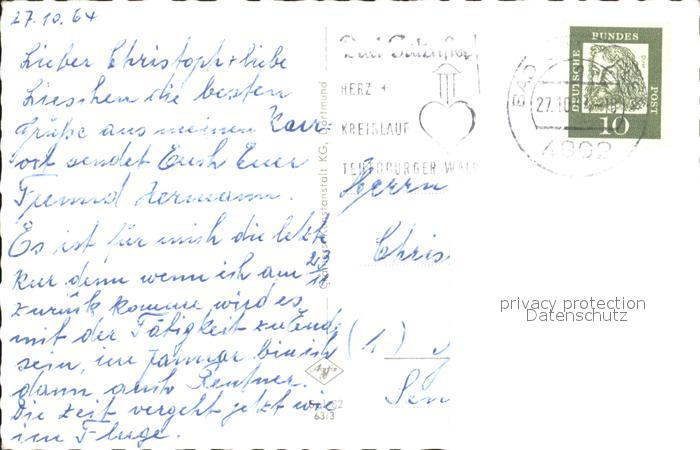 27.10.64
Lieber Christoph + liebe
Lieschen die besten
Grüße aus meinem Kur-
ort sendet Euch Euer
Freund Hermann.
Es ist für mich die letzte
Kur denn wenn ich am
zurück komme wird es
mit der Tätigkeit zu Ende
sein, im Januar bin ich
dann auch Rentner.
Die Zeit vergeht jetzt wie
im Fluge.
Bad Salzuflen
HERZ +
KREISLAUF
TEUTOBURGER WALD
BAD
27.10
4902
DEUTSCHE BUNDESPOST
10
Herrn
Chris
(1)
63/3
privacy protection
Datenschutz